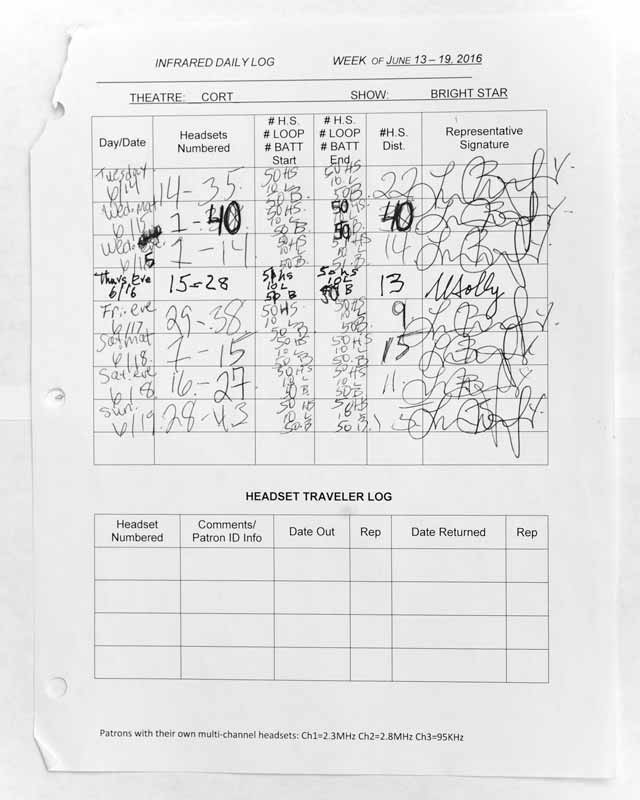 INFRARED DAILY LOG WEEK OF JUNE 13 – 19, 2016
THEATRE: CORT SHOW: BRIGHT STAR
Day/Date Headsets Numbered # H.S. # LOOP # BATT Start # H.S. # LOOP # BATT End #H.S. Dist. Representative Signature
Tuesday 6/14 14 - 35 50 HS 10 L 50 B 50 HS 10 L 50 B 22
Wed. mat 6/15 1 - 40 50 HS 10 L 50 B 50 HS 10 L 50 B 40
Wed. eve 6/15 1 - 14 50 HS 10 L 50 B 50 HS 10 L 50 B 14
Thurs. eve 6/16 15 - 28 50 HS 10 L 50 B 50 HS 10 L 50 B 13
Fri. eve 6/17 29 - 38 50 HS 10 L 50 B 50 HS 10 L 50 B 9
Sat. mat 6/18 1 - 15 50 HS 10 L 50 B 50 HS 10 L 50 B 15
Sat. eve 6/18 16 - 27 50 HS 10 L 50 B 50 HS 10 L 50 B 11
Sun. 6/19 28 - 43 50 HS 10 L 50 B 50 HS 10 L 50 B 15
HEADSET TRAVELER LOG
Headset Numbered Comments/ Patron ID Info Date Out Rep Date Returned Rep
Patrons with their own multi-channel headsets: Ch1=2.3MHz Ch2=2.8MHz Ch3=95KHz